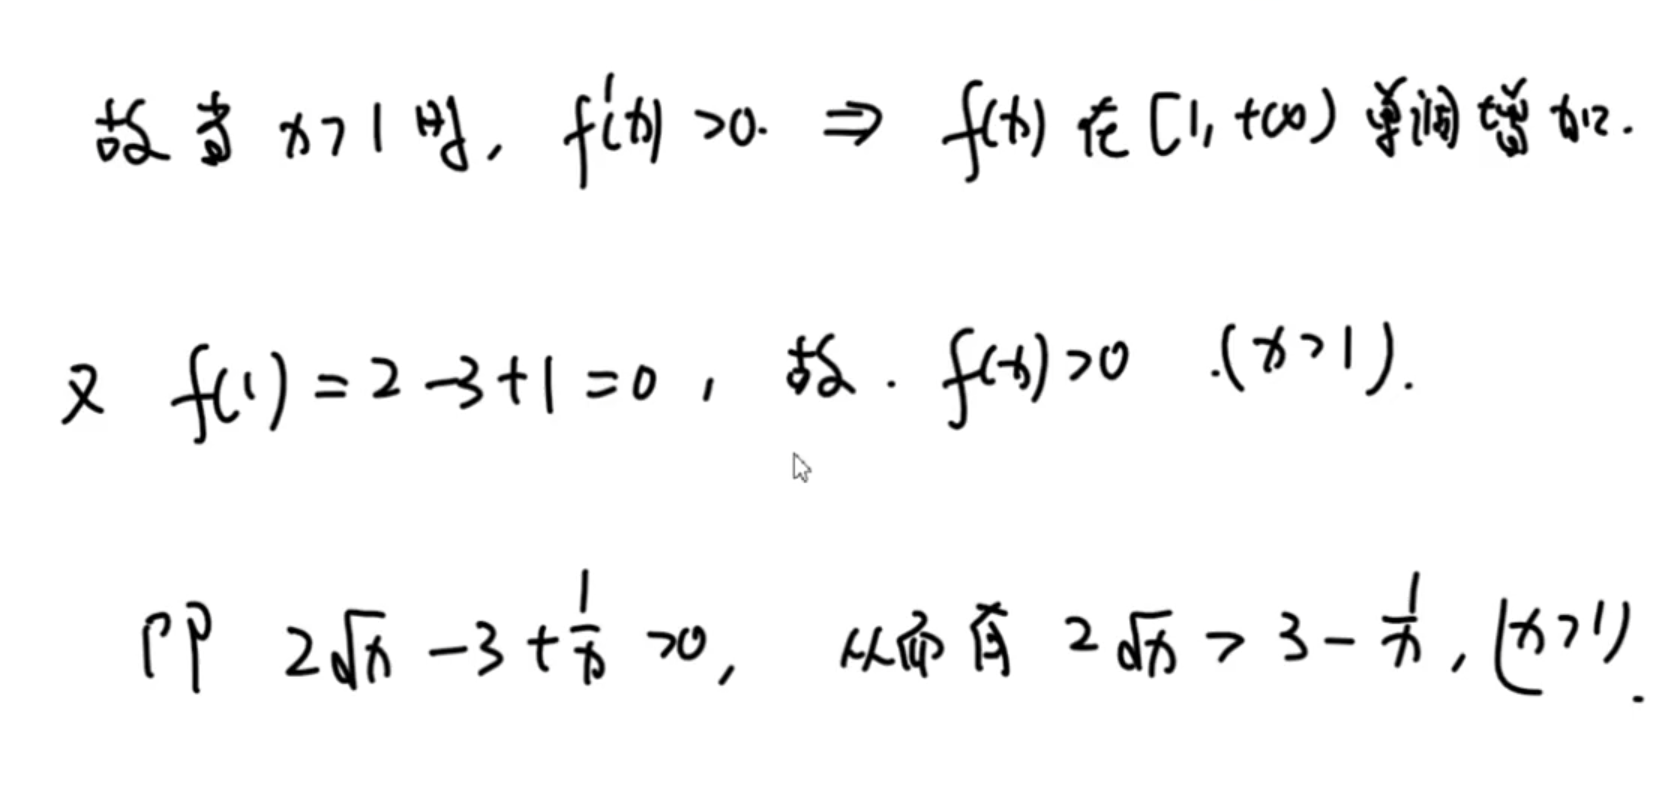 故当 x>1 时, f'(x)>0. ⇒ f(x) 在 [1, +∞) 单调增加.
又 f(1) = 2-3+1=0, 故. f(x)>0 .(x>1).
即 2√x -3+1/x >0, 从而有 2√x > 3-1/x, (x>1).